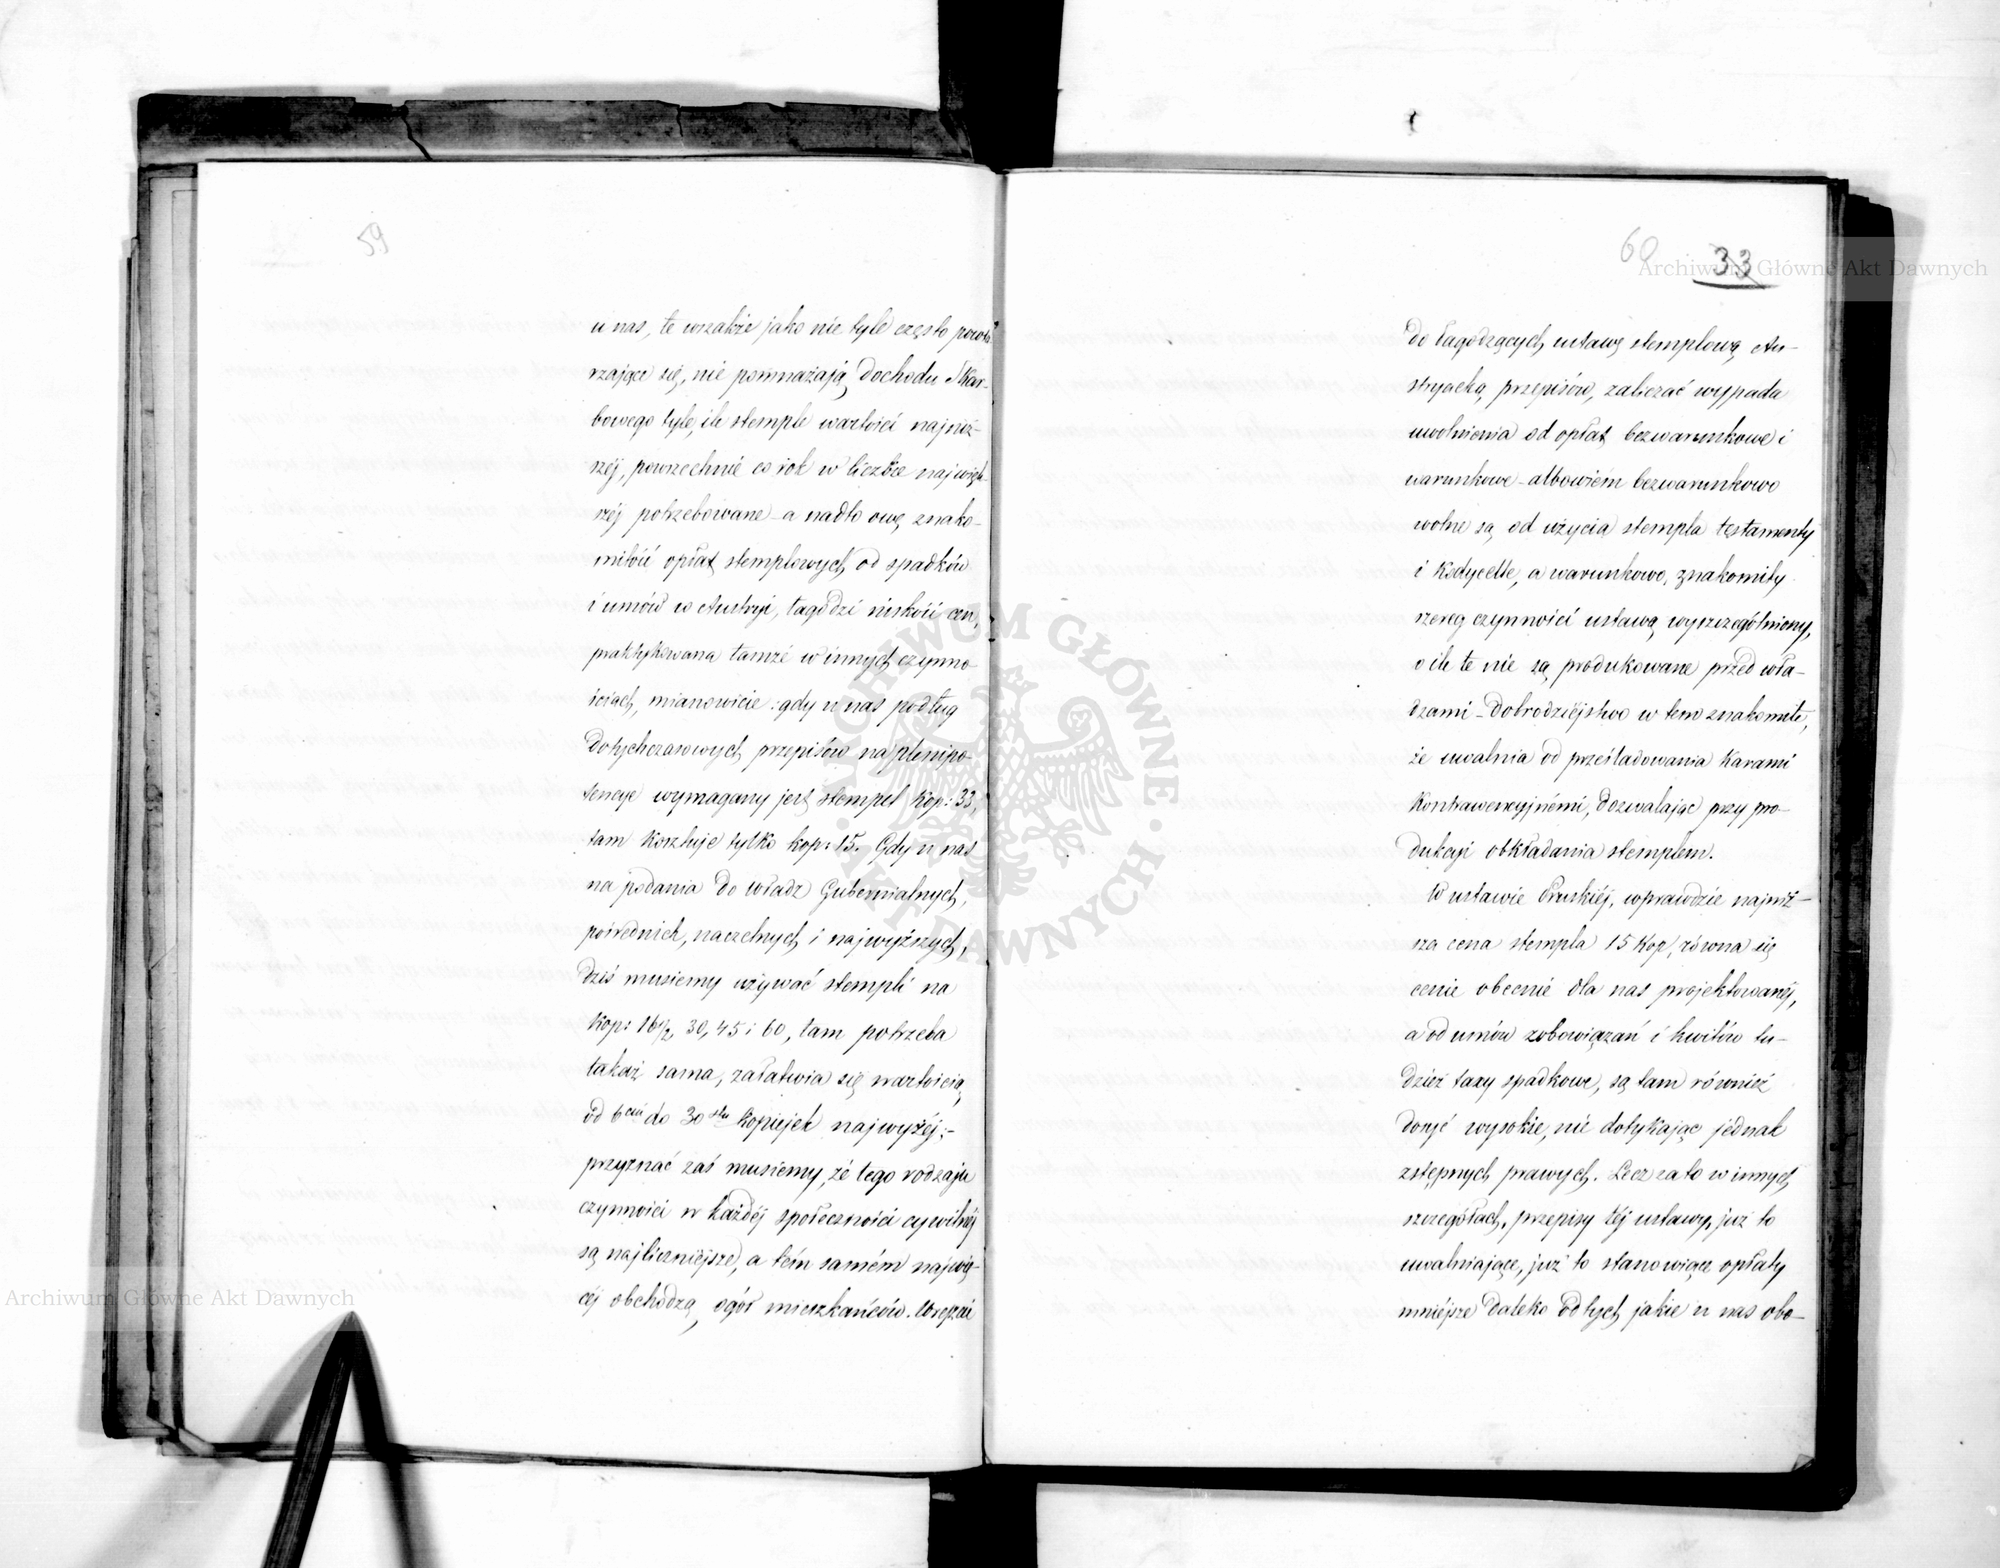 59
u nas, te wszakże jako nie tyle często powta
rzające się, nie pomnażają dochodu Skar-
bowego tyle, ile stemple wartości najniż-
széj, powszechnie co rok w liczbie najwięk-
széj potrzebowane – a nadto owę znako-
mitość opłat stemplowych od spadków
i umów w Austryi, łagodzi niskość cen,
praktykowana tamże w innych czynno-
ściach, mianowicie: gdy u nas podług
dotychczasowych przepisów na plenipo-
tencye wymagany jest stempel kop: 33,
tam kosztuje tylko kop: 15. Gdy u nas
na podania do władz Gubernialnych,
pośrednich, naczelnych i najwyższych,
dziś musiemy używać stempli na
kop: 16½, 30, 45 i 60, tam potrzeba
takaż sama, załatwia się wartością
od 6ciu do 30stu kopiejek najwyżéj; –
przyznać zaś musiemy, że tego rodzaju
czynności w każdéj społeczności cywilnéj
są najliczniejsze, a tém samém najwię-
céj obchodzą ogół mieszkańców. Wreszcie
60 33
do łagodzących ustawę stemplową Au-
stryacką, przepisów, zaliczać wypada
uwolnienia od opłat bezwarunkowe i
warunkowe – albowiem bezwarunkowo
wolne są od użycia stempla testamenty
i kodycelle, a warunkowo, znakomity
szereg czynności ustawą wyszczególniony,
o ile te nie są produkowane przed wła-
dzami – Dobrodziéjstwo w tem znakomite,
że uwalnia od prześladowania karami
kontrawencyjnémi, dozwalając przy pro-
dukcyi obkładania stemplem.
W ustawie Pruskiéj, wprawdzie najniż-
sza cena stempla 15 kop, równa się
cenie obecnie dla nas projektowanéj,
a od umów zobowiązań i kwitów tu-
dzież taxy spadkowe, są tam również
dosyć wysokie, nie dotykając jednak
zstępnych prawych. Lecz za to w innych
szczegółach, przepisy téj ustawy, już to
uwalniające, już to stanowiące opłaty
mniéjsze daleko od tych jakie u nas obo-
Archiwum Główne Akt Dawnych
Archiwum Główne Akt Dawnych
ARCHIWUM GŁÓWNE · AKT DAWNYCH ·